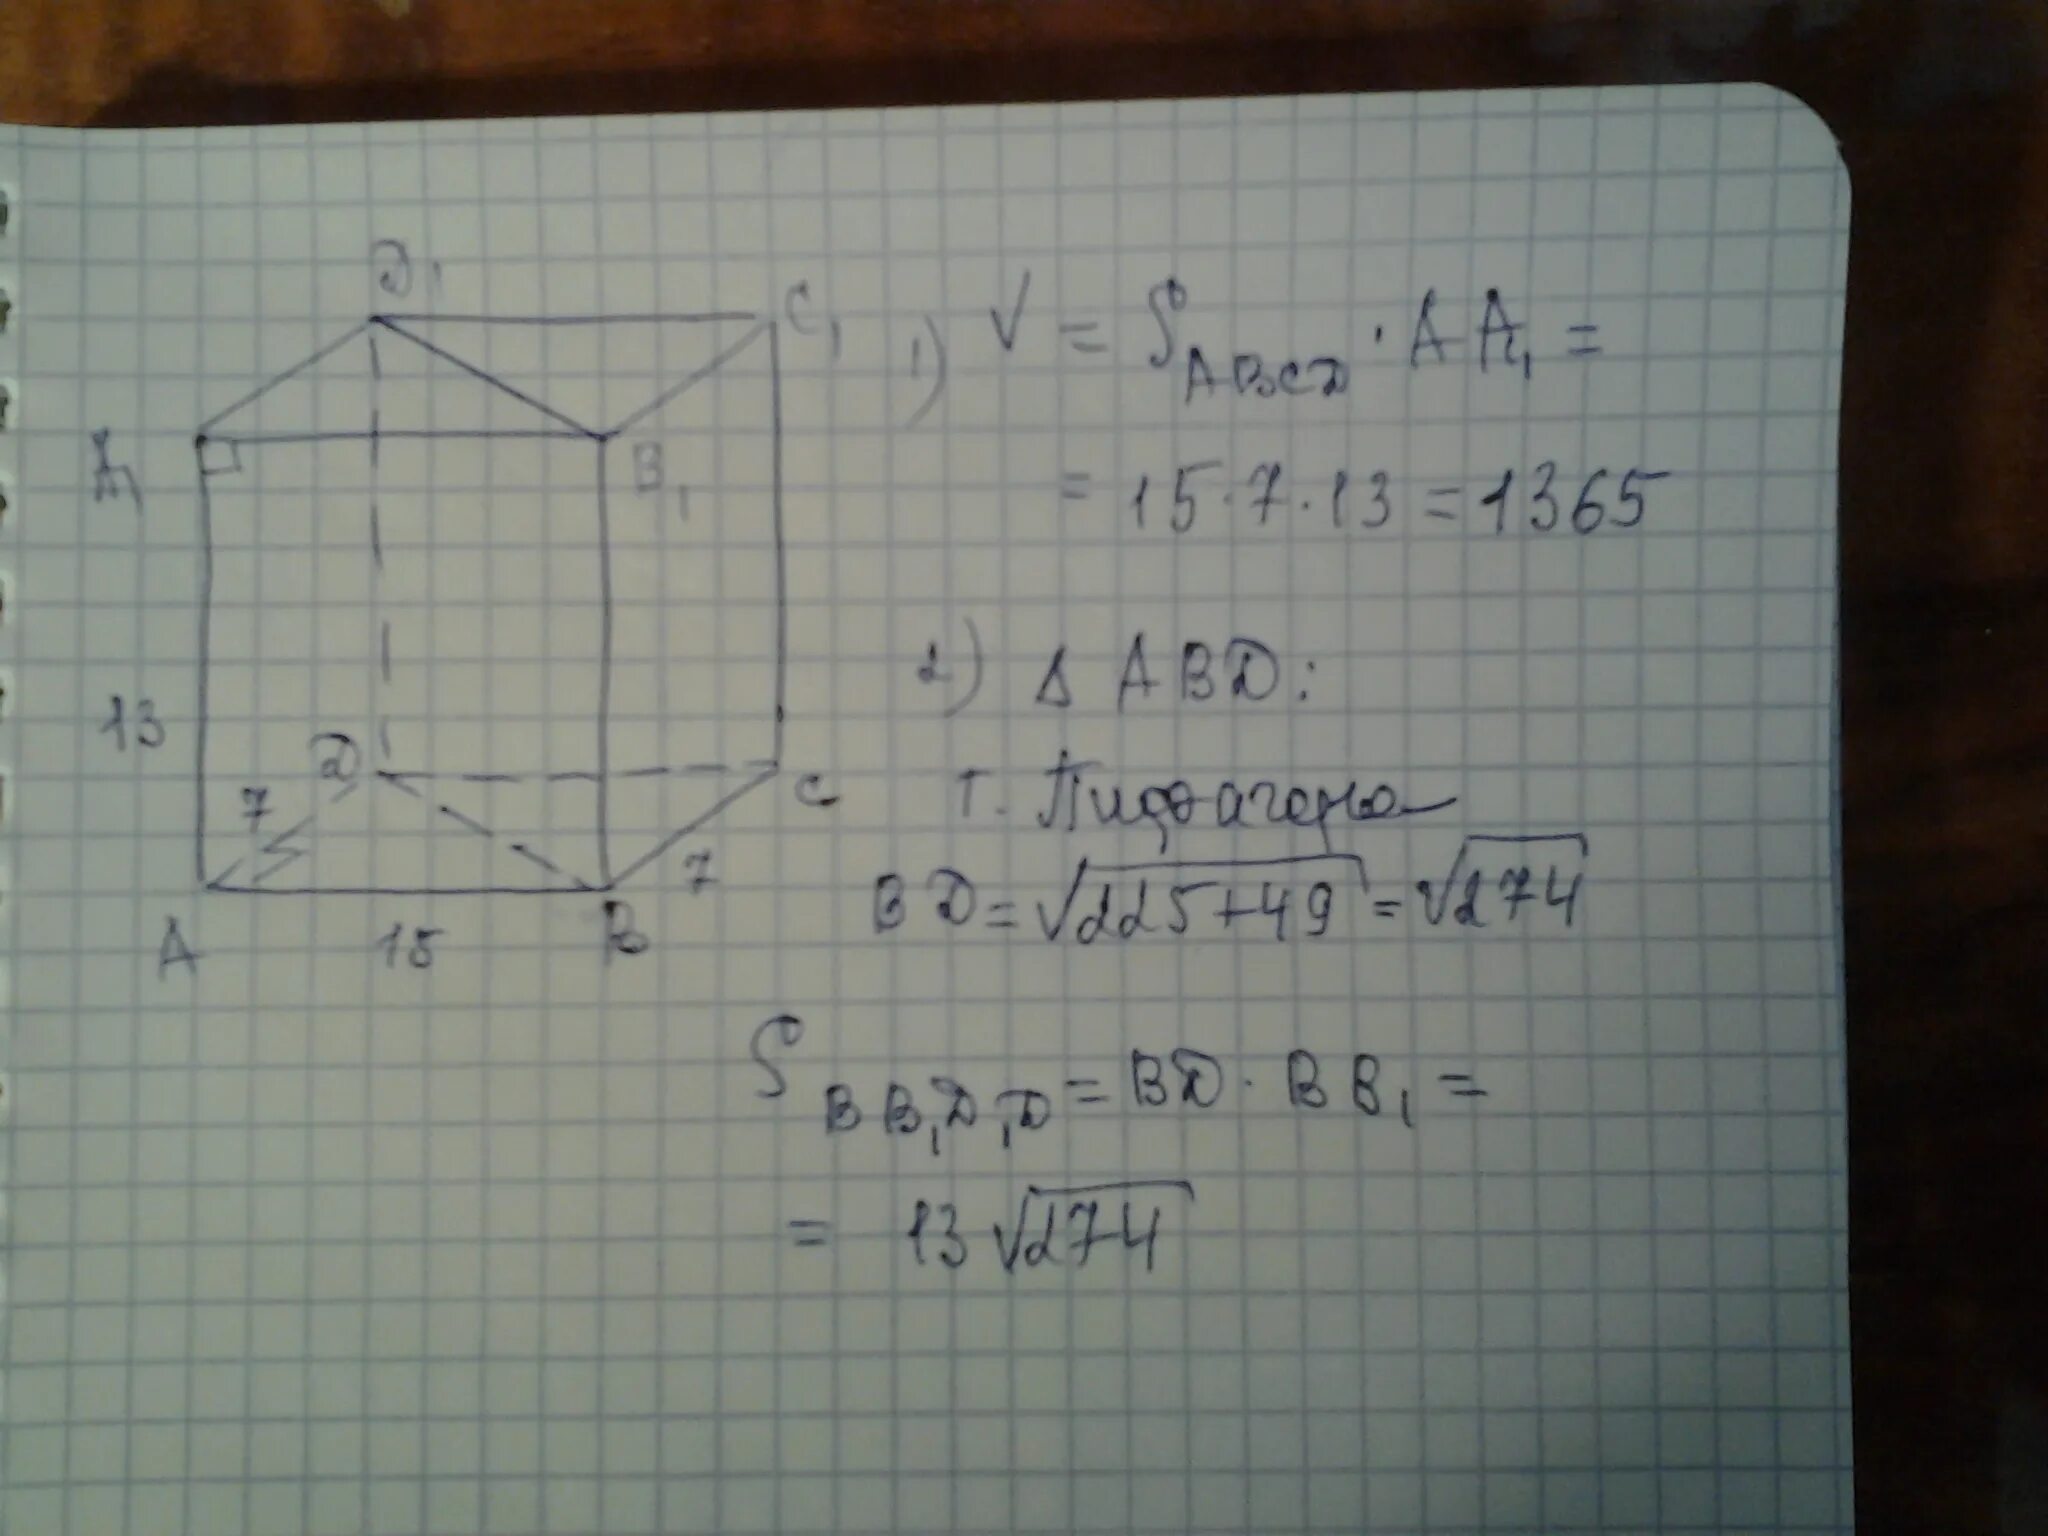 D₁
C₁
A₁
B₁
13
D
7
C
7
A
15
B
1) V = S_ABCD · AA₁ =
= 15 · 7 · 13 = 1365
2) Δ ABD:
т. Пифагора
BD = √(225+49) = √274
S_BB₁D₁D = BD · BB₁ =
= 13√274